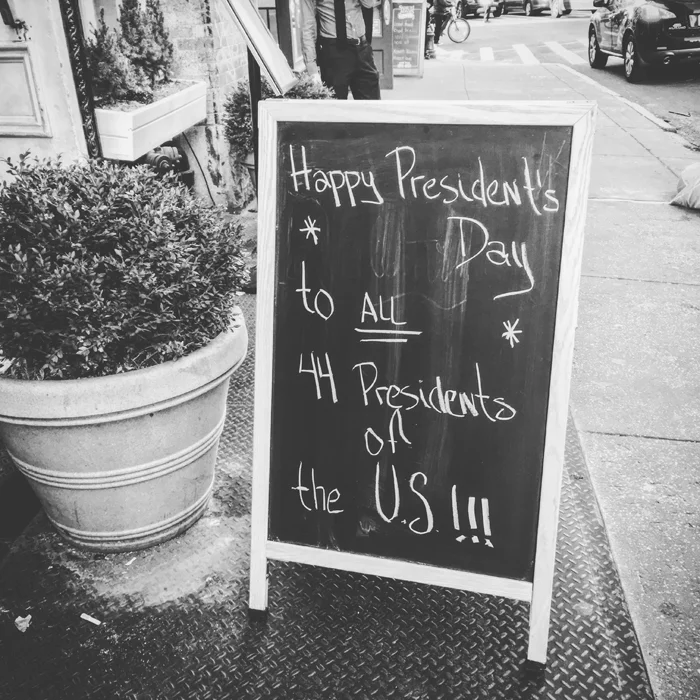 Happy President's
* Day
to ALL
*
44 Presidents
of
the U.S. !!!